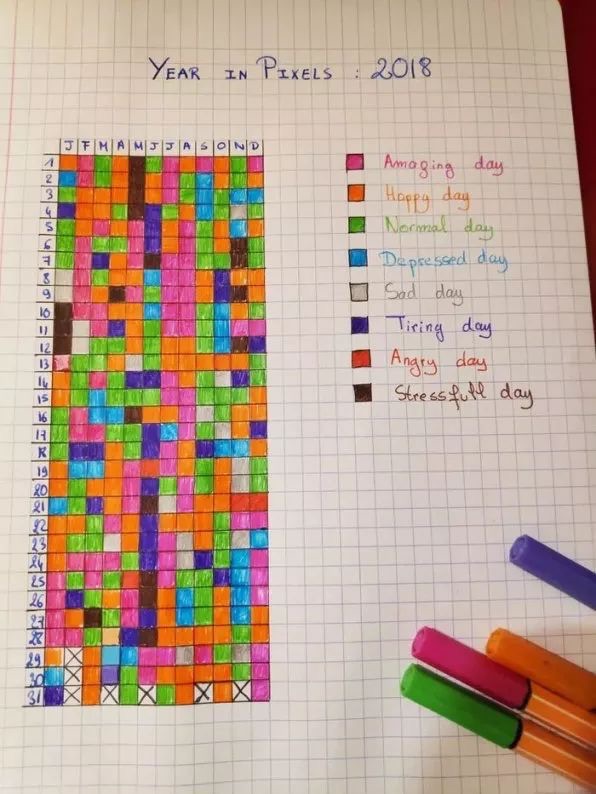 YEAR IN PIXELS : 2018
J F M A M J J A S O N D
1
2
3
4
5
6
7
8
9
10
11
12
13
14
15
16
17
18
19
20
21
22
23
24
25
26
27
28
29
30
31
Amazing day
Happy day
Normal day
Depressed day
Sad day
Tiring day
Angry day
Stressfull day